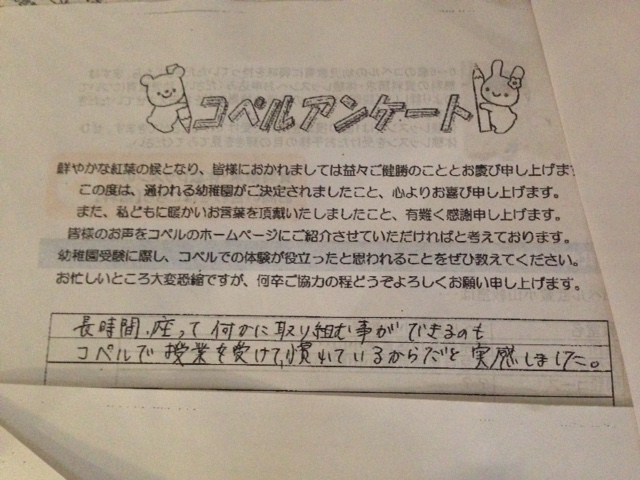 コペルアンケート
鮮やかな紅葉の候となり、皆様におかれましては益々ご健勝のこととお慶び申し上げます
この度は、通われる幼稚園がご決定されましたこと、心よりお喜び申し上げます。
また、私どもに暖かいお言葉を頂戴いたしましたこと、有難く感謝申し上げます。
皆様のお声をコペルのホームページにご紹介させていただければと考えております。
幼稚園受験に際し、コペルでの体験が役立ったと思われることをぜひ教えてください。
お忙しいところ大変恐縮ですが、何卒ご協力の程どうぞよろしくお願い申し上げます。
長時間、座って何かに取り組む事ができるのも
コペルで授業を受けて、慣れているからだと実感しました。